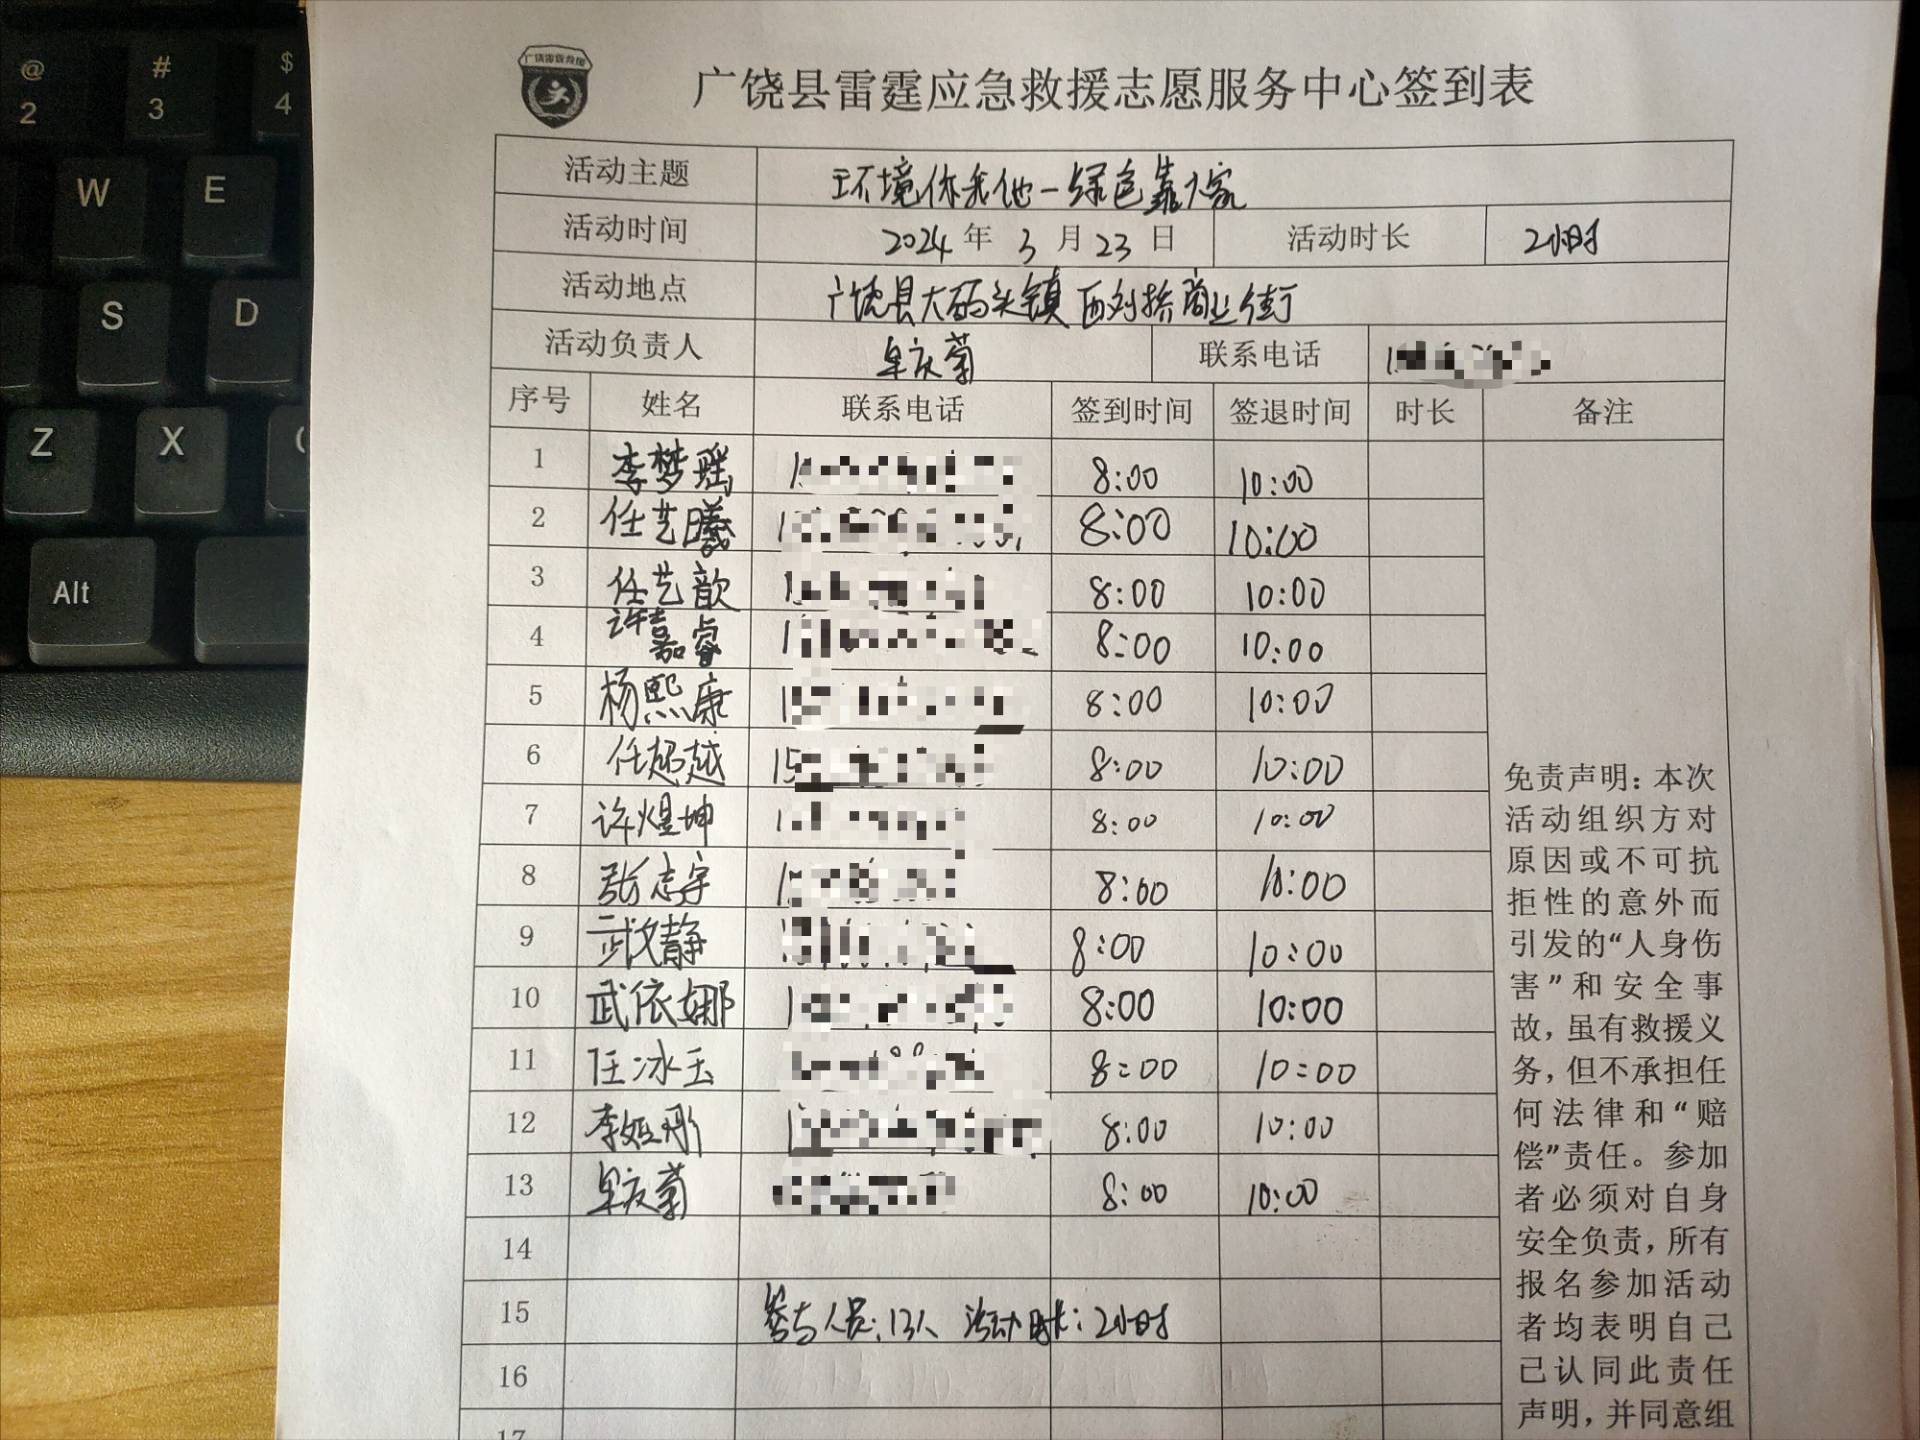 广饶雷霆救援
广饶县雷霆应急救援志愿服务中心签到表
活动主题 环境你我他一绿色靠大家
活动时间 2024 年 3 月 23 日 活动时长 2小时
活动地点 广饶县大码头镇西刘桥商业街
活动负责人 庆菊 联系电话
序号 姓名 联系电话 签到时间 签退时间 时长 备注
1 李梦瑶 8:00 10:00
2 任艺曦 8:00 10:00
3 任艺歆 8:00 10:00
4 许嘉睿 8:00 10:00
5 杨熙康 8:00 10:00
6 任超越 15 8:00 10:00
7 许煜坤 8:00 10:00
8 张志宇 8:00 10:00
9 武文静 8:00 10:00
10 武依娜 8:00 10:00
11 任冰玉 8:00 10:00
12 李娅彤 8:00 10:00
13 庆菊 8:00 10:00
14
15 参与人员:13人 活动时长:2小时
16
17
免责声明:本次
活动组织方对
原因或不可抗
拒性的意外而
引发的“人身伤
害”和安全事
故,虽有救援义
务,但不承担任
何法律和“赔
偿”责任。参加
者必须对自身
安全负责,所有
报名参加活动
者均表明自己
已认同此责任
声明,并同意组
@
2
#
3
$
4
W
E
S
D
Z
X
Alt